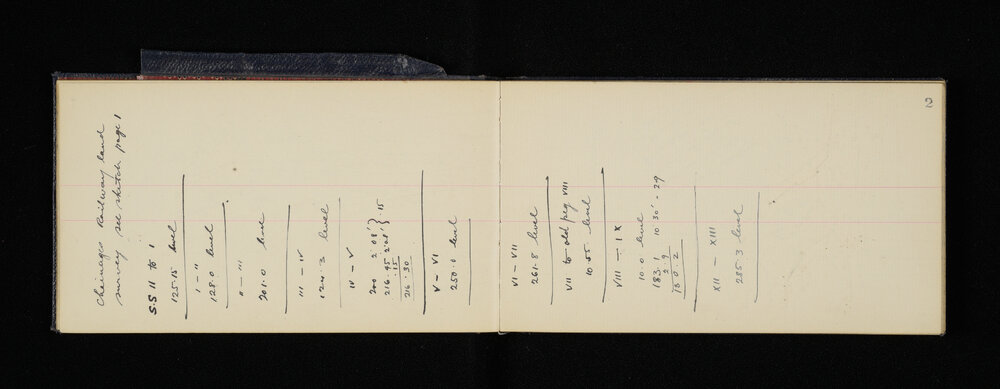 Chainages Railway land
survey see sketch page 1
S.S 11 to 1
125.15 level
1 - "
128.0 level
" - "'
201.0 level
III - IV
124.3 level
IV - V
200 2.08' } .15
216.45 2.08' }
.15
216.30
V - VI
250.0 level
2
VI - VII
261.8 level
VII to old peg VIII
10.5 level
VIII - IX
10.0 level
183.1 10.30' - 29
2.9
180.2
XII - XIII
285.3 level